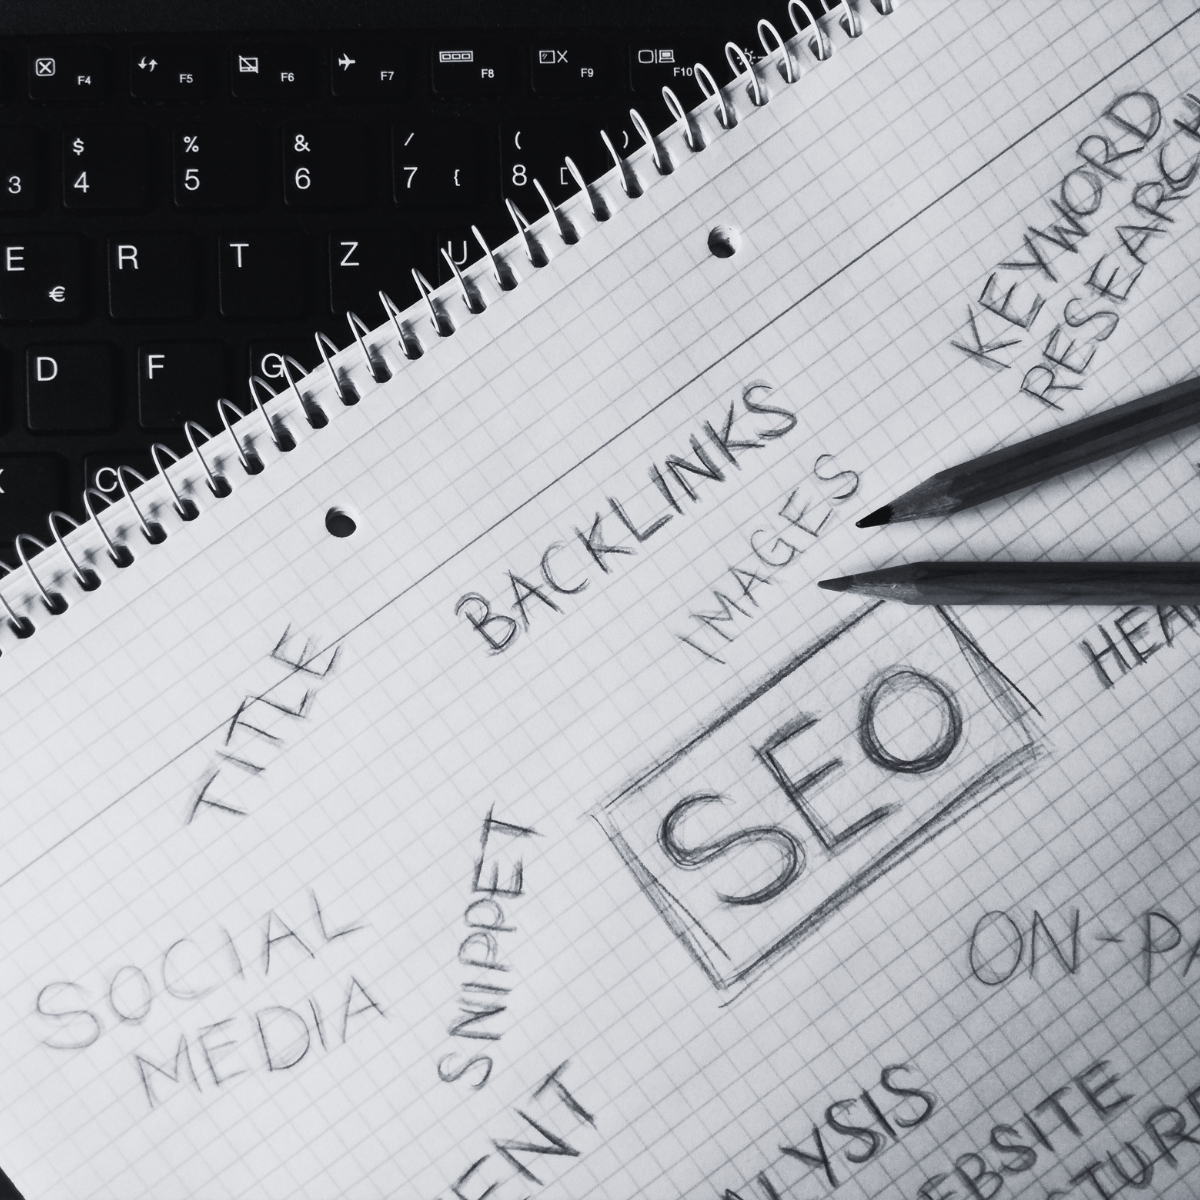 F4 F5 F6 F7 F8 F9 F10
$ % & / ( )
3 4 5 6 7 { 8 [
E € R T Z U
D F G
X C
KEYWORD
RESEARCH
BACKLINKS
IMAGES
TITLE
HEA
SEO
SNIPPET
ON-PA
SOCIAL
MEDIA
ENT
ALYSIS
EBSITE
TUR